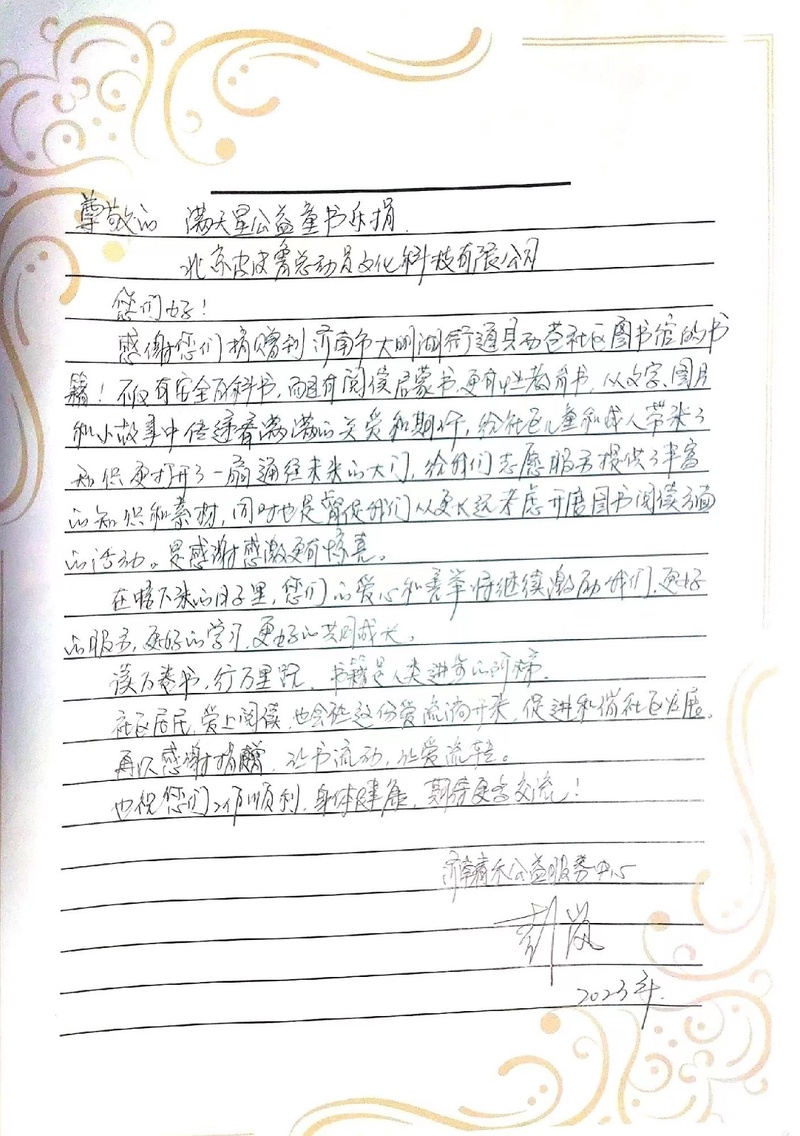 尊敬的 满天星公益童书乐捐.
北京皮皮鲁总动员文化科技有限公司
您们好!
感谢您们捐赠到济南市大明湖街道县西巷社区图书馆的书
籍!不仅有安全百科书,而且有阅读启蒙书,更有性教育书,从文字、图片
和小故事中传递着满满的关爱和期许,给社区儿童和成人带来了
知识更打开了一扇通往未来的大门,给我们志愿服务提供了丰富
的知识和素材,同时也是督促我们从更长远考虑开展图书阅读方面
的活动。是感谢感激更有惊喜。
在接下来的日子里,您们的爱心和善举将继续激励我们,更好
的服务,更好的学习,更好的共同成长。
读万卷书,行万里路,书籍是人类进步的阶梯.
社区居民,爱上阅读,也会让这份爱流淌开来,促进和谐社区发展,
再次感谢捐赠,让书流动,让爱流转。
也祝您们工作顺利,身体健康,期待更多交流!
济南青禾公益服务中心
2023年.